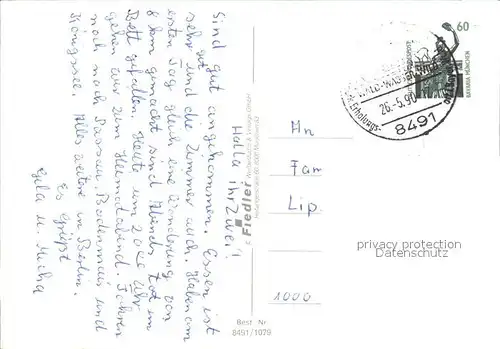 Hallo ihr Zwei!
Sind gut angekommen. Essen ist
sehr gut und die Zimmer auch. Haben am
ersten Tag gleich eine Wanderung von
8 km gemacht sind Abends tot im
Bett gefallen. Heute um 20 Uhr
gehen wir zum Heimatabend. Fahren
noch nach Passau, Bodenmais und
Königssee. Alles weitere in Berlin.
Es Grüßt
Gila u. Micha
Fiedler
Best Nr
8491/1079
26.-5.90
Erholungs-
8491
60
BAVARIA MÜNCHEN
An
Fam
Lip
1000
privacy protection
Datenschutz